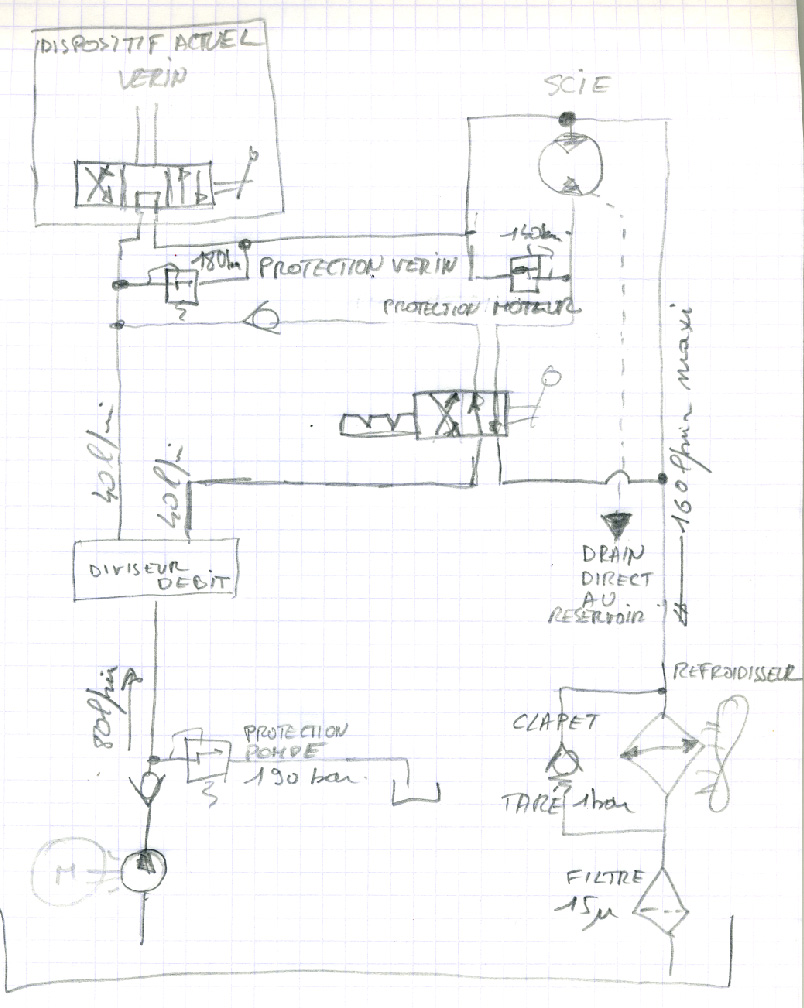 DISPOSITIF ACTUEL
VERIN
SCIE
180bar
PROTECTION VERIN
140bar
PROTECTION MOTEUR
40 l/min
40 l/min
160 l/min maxi
DIVISEUR
DEBIT
DRAIN
DIRECT
AU
RESERVOIR
REFROIDISSEUR
80l/min
PROTECTION
POMPE
190 bar
CLAPET
TARÉ 1bar
M
FILTRE
15µ